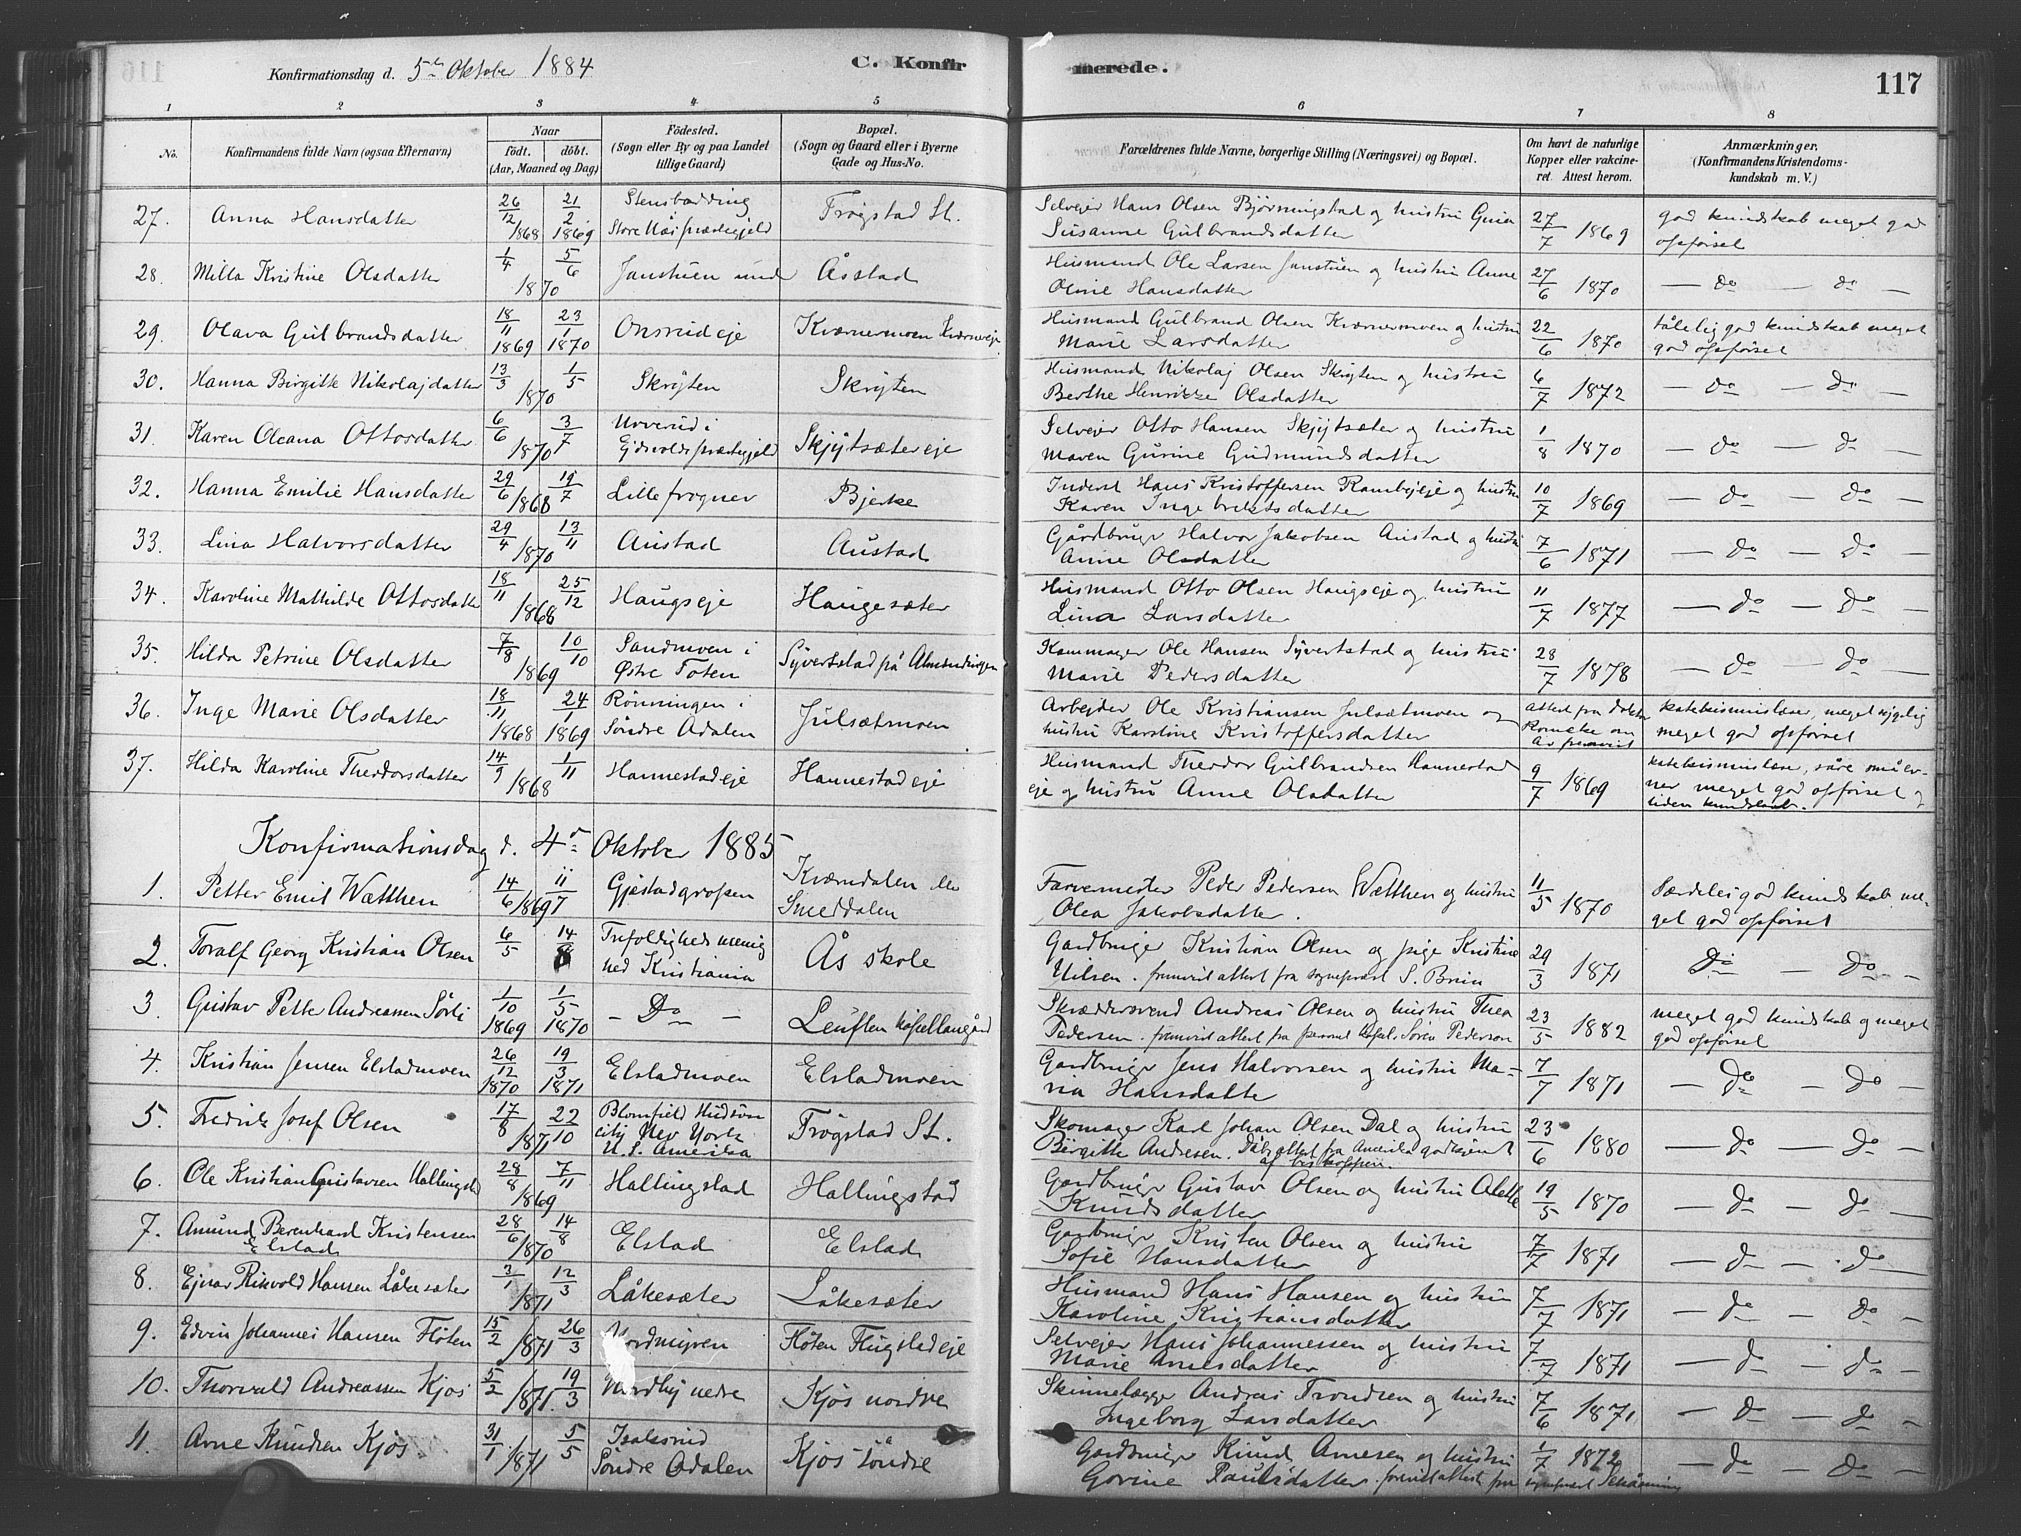 Konfirmationsdag d. 5te Oktober 1884
C. Konfirmerede.
117
1 2 3 4 5 6 7 8
No.
Konfirmandens fulde Navn (ogsaa Efternavn)
Naar
födt. döbt.
(Aar, Maaned og Dag)
Födested.
(Sogn eller By og paa Landet
tillige Gaard)
Bopæl.
(Sogn og Gaard eller i Byerne
Gade og Hus-No.
Forældrenes fulde Navne, borgerlige Stilling (Næringsvei) og Bopæl.
Om havt de naturlige
Kopper eller vakcine-
ret. Attest herom.
Anmærkninger.
(Konfirmandens Kristendoms-
kundskab m. V.)
27. Anna Hansdatter 26/12 1868 21/2 1869 Store Næs præstegjeld Frøgstad St. Selvejer Hans Olsen Bjørningstad og hustru
Susanne Gulbrandsdatter 27/7 1869 god kundskab meget god
opførsel
28. Milla Kristine Olsdatter 1/4 5/6 1870 Janstuen Åsstad Husmand Ole Larsen Janstuen og hustru Anne
Oline Hansdatter 27/6 1870 — do — do —
29. Olava Gulbrandsdatter 18/11 1869 23/1 1870 Onsrudeje Kværnermoen Husmand Gulbrand Olsen Kværnermoen og hustru
Marie Larsdatter 22/6 1870 tålelig god kundskab meget
god opførsel
30. Hanna Birgitte Nikolajdatter 13/3 1/5 1870 Skrÿten Skrÿten Husmand Nikolaj Olsen Skrÿten og hustru
Berthe Olsdatter 6/7 1872 — do — do —
31. Karen Oleana Ottosdatter 6/6 3/7 1870 Eidsvolds præstegjeld Skjÿtsætereje Selvejer Otto Hansen Skjÿtsæter og hustru
Maren Gurine Gudmundsdatter 1/8 1870 — do — do —
32. Hanna Emilie Hansdatter 29/6 19/7 1868 Lillefrogner Bjerke Inderst Hans Kristoffersen og hustru
Karen Ingebretsdatter 10/7 1869 — do — do —
33. Lina Halvorsdatter 29/4 13/11 1870 Austad Austad Gårdbruger Halvor Jakobsen Austad og hustru
Anne Olsdatter 7/6 1871 — do — do —
34. Karoline Mathilde Ottosdatter 18/11 25/12 1868 Haugseje Haugesæter Husmand Otto Olsen Haugseje og hustru
Lina Larsdatter 11/7 1877 — do — do —
35. Hilda Petrine Olsdatter 7/8 10/10 1869 Sandmoen i
Østre Toten Sÿvertstad på Almindingen Ole Hansen Sÿvertstad og hustru
Marie Pedersdatter 28/7 1878 — do — do —
36. Inge Marie Olsdatter 18/11 1868 24/1 1869 Rønningen i
Søndre Odalen Julsætmoen Arbejder Ole Kristiansen Julsætmoen og
hustru Karoline Kristoffersdatter attest fra doktor meget sÿgelig
meget god opførsel
37. Hilda Karoline Theodorsdatter 14/9 1/11 1868 Hannestadeje Hannestadeje Husmand Theodor Gulbrandsen Hannestad
eje og hustru Anne Olsdatter 9/7 1869 katekismuslæser, såre små ev-
ner meget god opførsel og
liden kundskab.
Konfirmationsdag d. 4de Oktober 1885
1. Petter Emil Watthen 14/6 1869 Kværndalen
Smeddalen Farvemester Peder Pedersen Watthen og hustru
Olea Jakobsdatter. 11/5 1870 Særdeles god kundskab me-
get god opførsel
2. Toralf Georg Kristian Olsen 6/5 14/8 Trefoldigheds menig
hed Kristiania Ås skole Gardbruger Kristian Olsen og pige Kristine
Nilsen. fremvist attest fra sognepræst S. Bruun 29/3 1871 Do Do —
3. Gustav Petter Andreassen Sørli 1/10 1869 1/5 1870 — Do — Skræddersvend Andreas Olsen og hustru Thea
Pedersen. fremvist attest fra Søren Pederson 23/5 1882 meget god kundskab og meget
god opførsel
4. Kristian Jensen Elstadmoen 26/12 1870 19/3 1871 Elstadmoen Elstadmoen Gardbruger Jens Halvorsen og hustru Ma-
ria Hansdatter 7/7 1871 — Do — Do —
5. Fredrik Josef Olsen 17/8 22/10 1871 Blomfield Hudson
city New York
U. S. Amerika Frøgstad St. Skomager Karl Johan Olsen Dal og hustru
Birgitte Andresen. Dåbsattest fra Amerika godkjendt
af biskoppen. 23/6 1880 — do — do —
6. Ole Kristian Gustavsen Hallingstad 28/8 7/11 1869 Hallingstad Hallingstad Gardbruger Gustav Olsen og hustru Alette
Knudsdatter 19/5 1870 — do — do —
7. Amund Berenhard Kristensen
Elstad 28/6 14/8 1870 Elstad Elstad Gardbruger Kristen Olsen og hustru
Sofie Hansdatter 7/7 1871 — do — do —
8. Ejnar Rikvold Hansen Låkesæter 3/1 12/3 1871 Låkesæter Låkesæter Husmand Hans Hansen og hustru
Karoline Kristiansdatter 7/7 1871 — do — do
9. Edvin Johannes Hansen Fløten 15/2 26/3 1871 Nordmÿren Fløten Flugstadeje Selvejer Hans Johannessen og hustru
Marie Arnesdatter 7/7 1871 — do — do —
10. Thorvald Andreassen Kjos 5/2 19/3 1871. Nordbÿ nedre Kjos nordre Skindlægger Andreas Trondsen og hustru
Ingeborg Larsdatter 7/6 1871 — do — do —
11. Arne Knudsen Kjos 31/1 5/5 1871 Isaksrud
Søndre Odalen Kjos søndre Gardbruger Knud Arnesen og hustru
Gorine Paulsdatter. fremvist attest fra sognepræst 1/7 1872 — do — do —